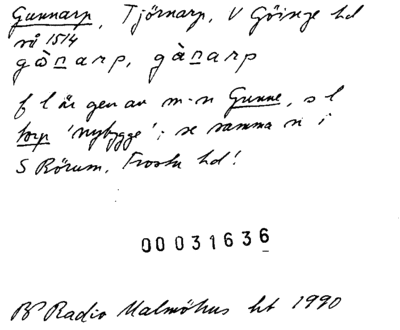 Gunnarp, Tjörnarp, V Göinge hd
nå 1514
gònarp, gànarp
f l är gen av m-n Gunne, s l
torp 'nybygge'; se samma n i
S Rörum, Frosta hd!
00031636
Br Radio Malmöhus ht 1990